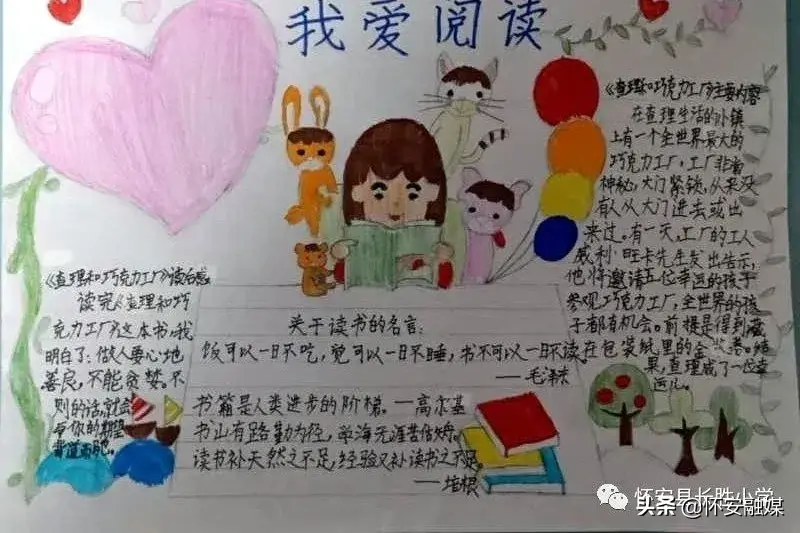 我爱阅读
《查理和巧克力工厂》读后感
读完《查理和巧
克力工厂》这本书,我
明白了:做人要心地
善良,不能贪婪。不
则的话,就会
与你的期望
背道而驰。
关于读书的名言:
饭可以一日不吃,觉可以一日不睡,书不可以一日不读
——毛泽东
书籍是人类进步的阶梯。——高尔基
书山有路勤为径,学海无涯苦作舟。
读书补天然之不足,经验又补读书之不足。
——培根
《查理和巧克力工厂》主要内容
在查理生活的小镇
上有一个全世界最大的
巧克力工厂,工厂非常
神秘,大门紧锁,从来没
有人从大门进去或出
来过。有一天,工厂的工人
威利·旺卡先生发出告示,
他将邀请五位幸运的孩子
参观巧克力工厂,全世界的孩
子都有机会。前提是得到藏
在包装纸里的金奖券。结
果,查理成了一位幸
运儿。
怀安县长胜小学
头条@怀安融媒